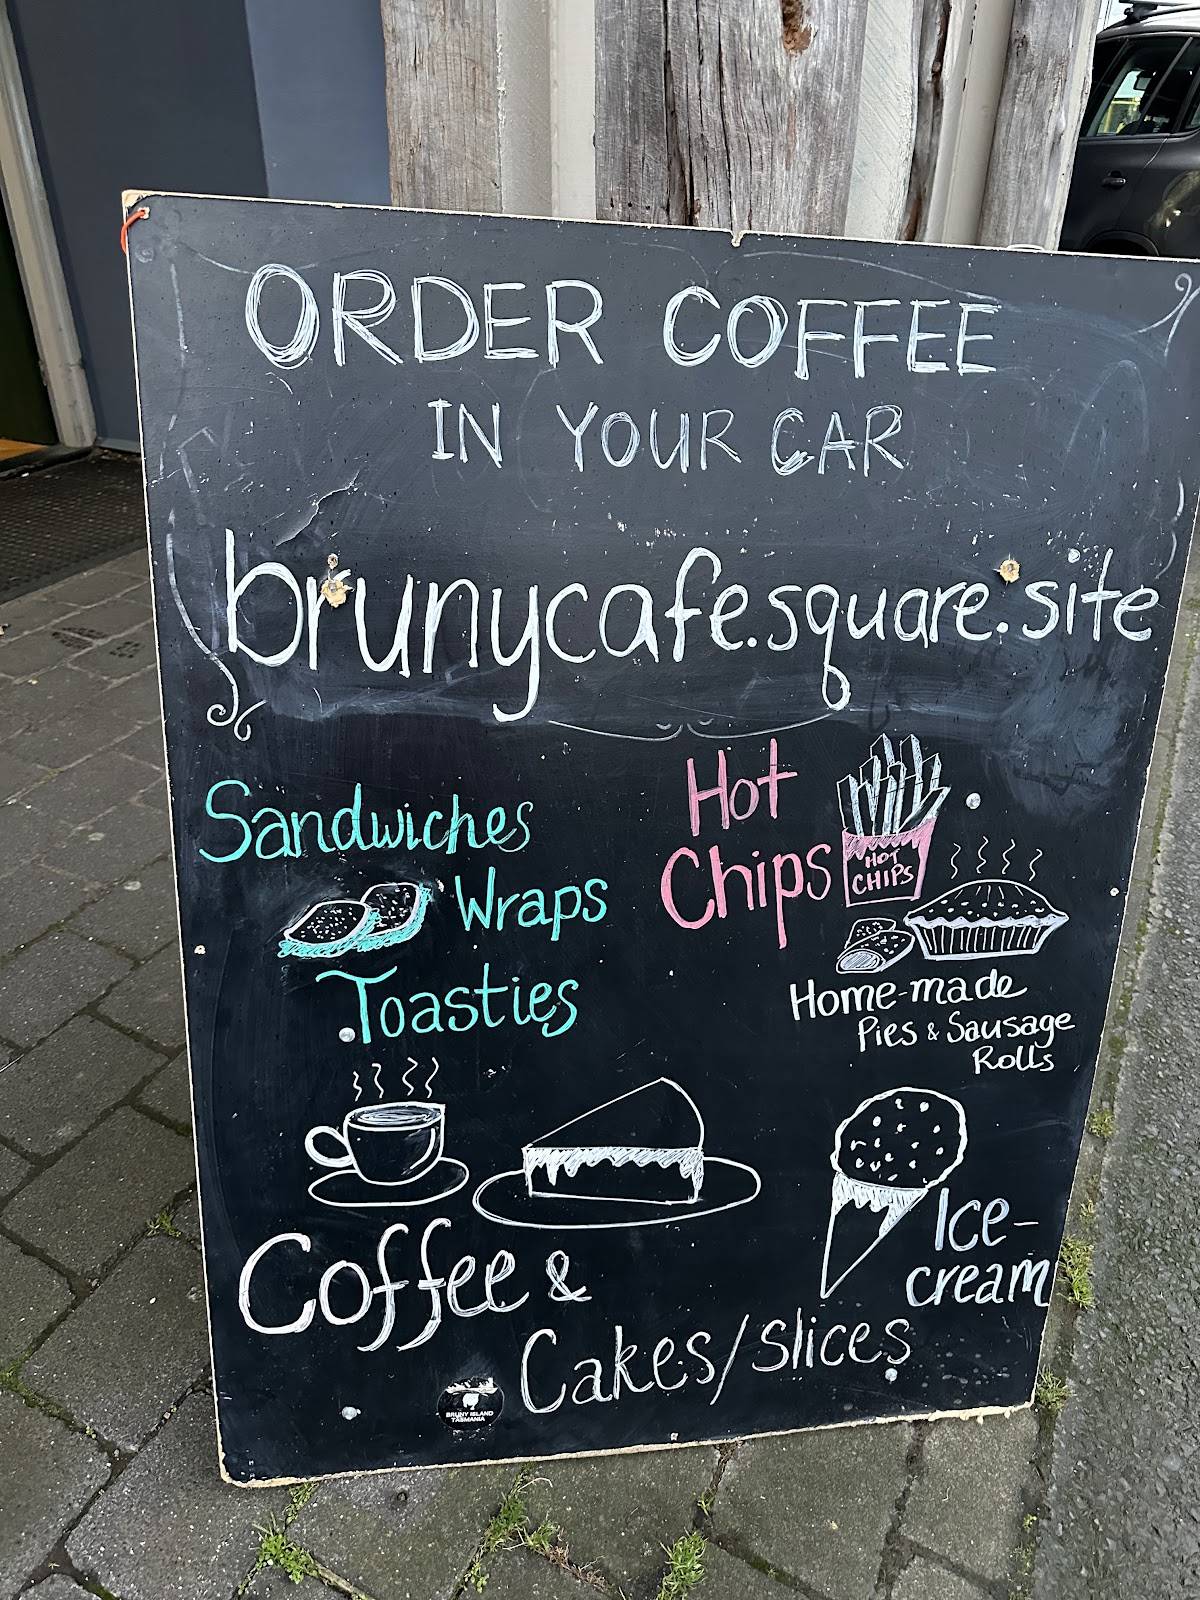 ORDER COFFEE
IN YOUR CAR
brunycafe.square.site
Sandwiches
Wraps
Toasties
Hot
Chips
HOT
CHIPS
Home-made
Pies & Sausage
Rolls
Coffee &
Cakes/Slices
Ice-
cream
BRUNY ISLAND
TASMANIA